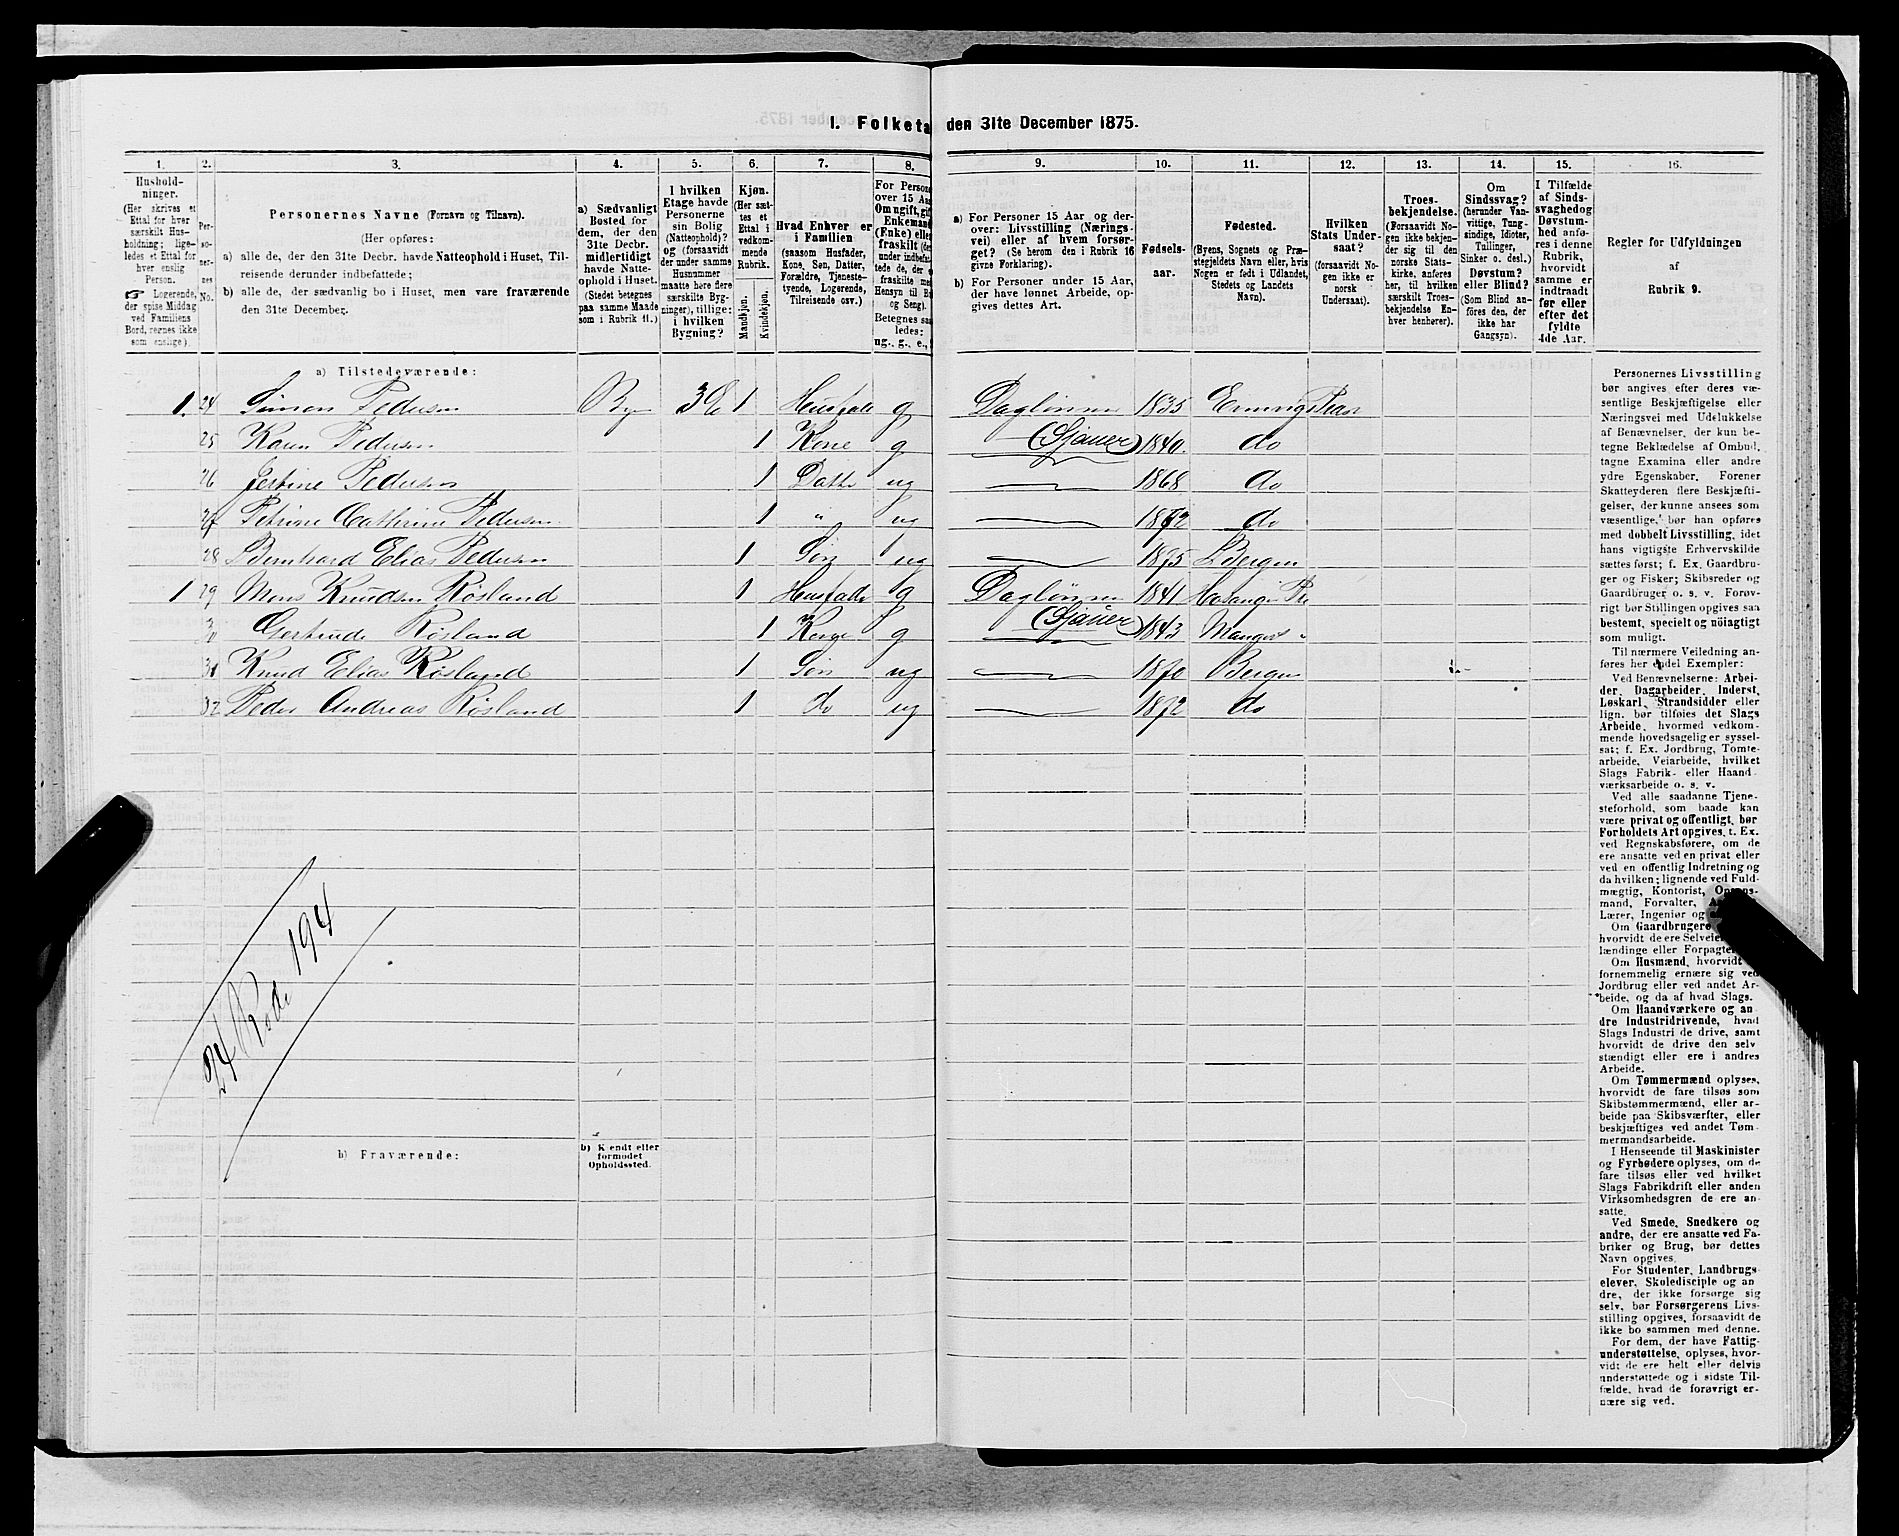 I. Folketa den 31te December 1875.
1. 2. 3. 4. 5. 6. 7. 8. 9. 10. 11. 12. 13. 14. 15. 16.
Hushold-
ninger.
(Her skrives et
Ettal for hver
særskilt Hus-
holdning; lige-
ledes et Ettal for
hver enslig
Person.
☞ Logerende,
der spise Middag
ved Familiens
Bord, regnes ikke
som enslige).
Per-
so-
ner-
nes
No.
Personernes Navne (Fornavn og Tilnavn).
(Her opføres:
a) alle de, der den 31te Decbr. havde Natteophold i Huset, Til-
reisende derunder indbefattede;
b) alle de, der sædvanlig bo i Huset, men vare fraværende
den 31te December.
a) Sædvanligt
Bosted for
dem, der den
31te Decbr.
midlertidigt
havde Natte-
ophold i Huset.
(Stedet betegnes
paa samme Maade
som i Rubrik 11.)
I hvilken
Etage havde
Personerne
sin Bolig
(Natteophold)?
og (forsaavidt
der under samme
Husnummer
maatte høre flere
særskilte Byg-
ninger), tillige:
i hvilken
Bygning?
Kjøn.
(Her sæt-
tes et
Ettal i
vedkom-
mende
Rubrik.
Mandkjøn.
Kvindekjøn.
Hvad Enhver er
i Familien
(saasom Husfader,
Kone, Søn, Datter,
Forældre, Tjeneste-
tyende, Logerende,
Tilreisende osv.)
For Persone
over 15 Aar
Om ugift, gif
Enkemand
(Enke) elle
fraskilt (de
under indbefat-
tede de, der e
fraskilte med
Hensyn til Bo
og Seng).
Betegnes saa
ledes:
ug., g., e.,
a) For Personer 15 Aar og der-
over: Livsstilling (Nærings-
vei) eller af hvem forsør-
get? (Se herom den i Rubrik 16
givne Forklaring).
b) For Personer under 15 Aar,
der have lønnet Arbeide, op-
gives dettes Art.
Fødsels-
aar.
Fødested.
(Byens, Sognets og Præ-
stegjeldets Navn eller, hvis
Nogen er født i Udlandet,
Stedets og Landets
Navn).
Hvilken
Stats Under-
saat?
(forsaavidt No-
gen ikke er
norsk
Undersaat).
Troes-
bekjendelse.
(Forsaavidt No-
gen ikke bekjen-
der sig til den
norske Stats-
kirke, anføres
her, til hvilken
særskilt Troes-
bekjendelse En-
hver henhører).
Om
Sindssvag?
(herunder Van-
vittige, Tung-
sindige, Idioter,
Tullinger,
Sinker o. desl.)
Døvstum?
eller Blind?
(Som Blind an-
føres den, der
ikke har
Gangsyn).
I Tilfælde
af Sinds-
svaghed og
Døvstum-
hed anfø-
res i denne
Rubrik,
hvorvidt
samme er
indtraadt
før eller
efter det
fyldte
4de Aar.
Regler for Udfyldningen
af
Rubrik 9.
a) Tilstedeværende:
1. 24 Simon Pedersen By 3 E 1 Husfade g Daglønner 1835
25 Karen Pedersen 1 Kone g (Sjauer) 1840. do
26 Jertine Pedersen 1 Datte ug 1868 do
27 Petrine Cathrine Pedersen 1 " ug 1872 do
28 Bernhard Elias Pedersen 1 Søn ug 1875 Bergen
1 29 Mons Knudsen Røsland 1 Husfade g Daglønner 1841
30 Gertrude Røsland 1 Kone g (Sjauer) 1843 Mangers "
31 Knud Elias Røsland 1 Søn ug 1870 Bergen
32 Peder Andreas Røsland 1 do ug 1872 do
24 Rode 194
b) Fraværende:
b) Kjendt eller
formodet
Opholdssted.
Personernes Livsstilling
bør angives efter deres væ-
sentlige Beskjæftigelse eller
Næringsvei med Udelukkelse
af Benævnelser, der kun be-
tegne Beklædelse af Ombud,
tagne Examina eller andre
ydre Egenskaber. Forener
Skatteyderen flere Beskjæfti-
gelser, der kunne ansees som
væsentlige, bør han opføres
med dobbelt Livsstilling, idet
hans vigtigste Erhvervskilde
sættes først; f. Ex. Gaardbru-
ger og Fisker; Skibsreder og
Gaardbruger o. s. v. Forøv-
rigt bør Stillingen opgives saa
bestemt, specielt og nøiagtigt
som muligt.
Til nærmere Veiledning an-
føres her endel Exempler:
Ved Benævnelserne: Arbei-
der, Dagarbeider, Inderst,
Løskarl, Strandsidder eller
lign. bør tilføies det Slags
Arbeide, hvormed vedkom-
mende hovedsagelig er syssel-
sat; f. Ex. Jordbrug, Tomte-
arbeide, Veiarbeide, hvilket
Slags Fabrik- eller Haand-
værksarbeide o. s. v.
Ved alle saadanne Tjene-
steforhold, som baade kan
være privat og offentligt, bør
Forholdets Art opgives, t. Ex.
ved Regnskabsførere, om de
ere ansatte ved en privat eller
ved en offentlig Indretning og
da hvilken; lignende ved Fuld-
mægtig, Kontorist, Opsyns-
mand, Forvalter,
Lærer, Ingeniør og
Om Gaardbrugere
hvorvidt de ere Selveie
lændinge eller Forpagte
Om Husmænd, hvorvidt
fornemmelig ernære sig ved
Jordbrug eller ved andet Ar-
beide, og da af hvad Slags.
Om Haandværkere og an-
dre Industridrivende, hvad
Slags Industri de drive, samt
hvorvidt de drive den selv-
stændigt eller ere i andres
Arbeide.
Om Tømmermænd oplyses,
hvorvidt de fare tilsøs som
Skibstømmermænd, eller ar-
beide paa Skibsværfter, eller
beskjæftiges ved andet Tøm-
mermandsarbeide.
I Henseende til Maskinister
og Fyrbødere oplyses, om de
fare tilsøs eller ved hvilket
Slags Fabrikdrift eller anden
Virksomhedsgren de ere an-
satte.
Ved Smede, Snedkere og
andre, der ere ansatte ved Fa-
briker og Brug, bør dettes
Navn opgives.
For Studenter, Landbrugs-
elever, Skoledisciple og an-
dre, der ikke forsørge sig
selv, bør Forsørgerens Livs-
stilling opgives, forsaavidt de
ikke bo sammen med denne.
For dem, der have Fattig-
understøttelse, oplyses, hvor-
vidt de ere helt eller delvis
understøttede og i sidste Til-
fælde, hvad de forøvrigt er-
nære sig ved.